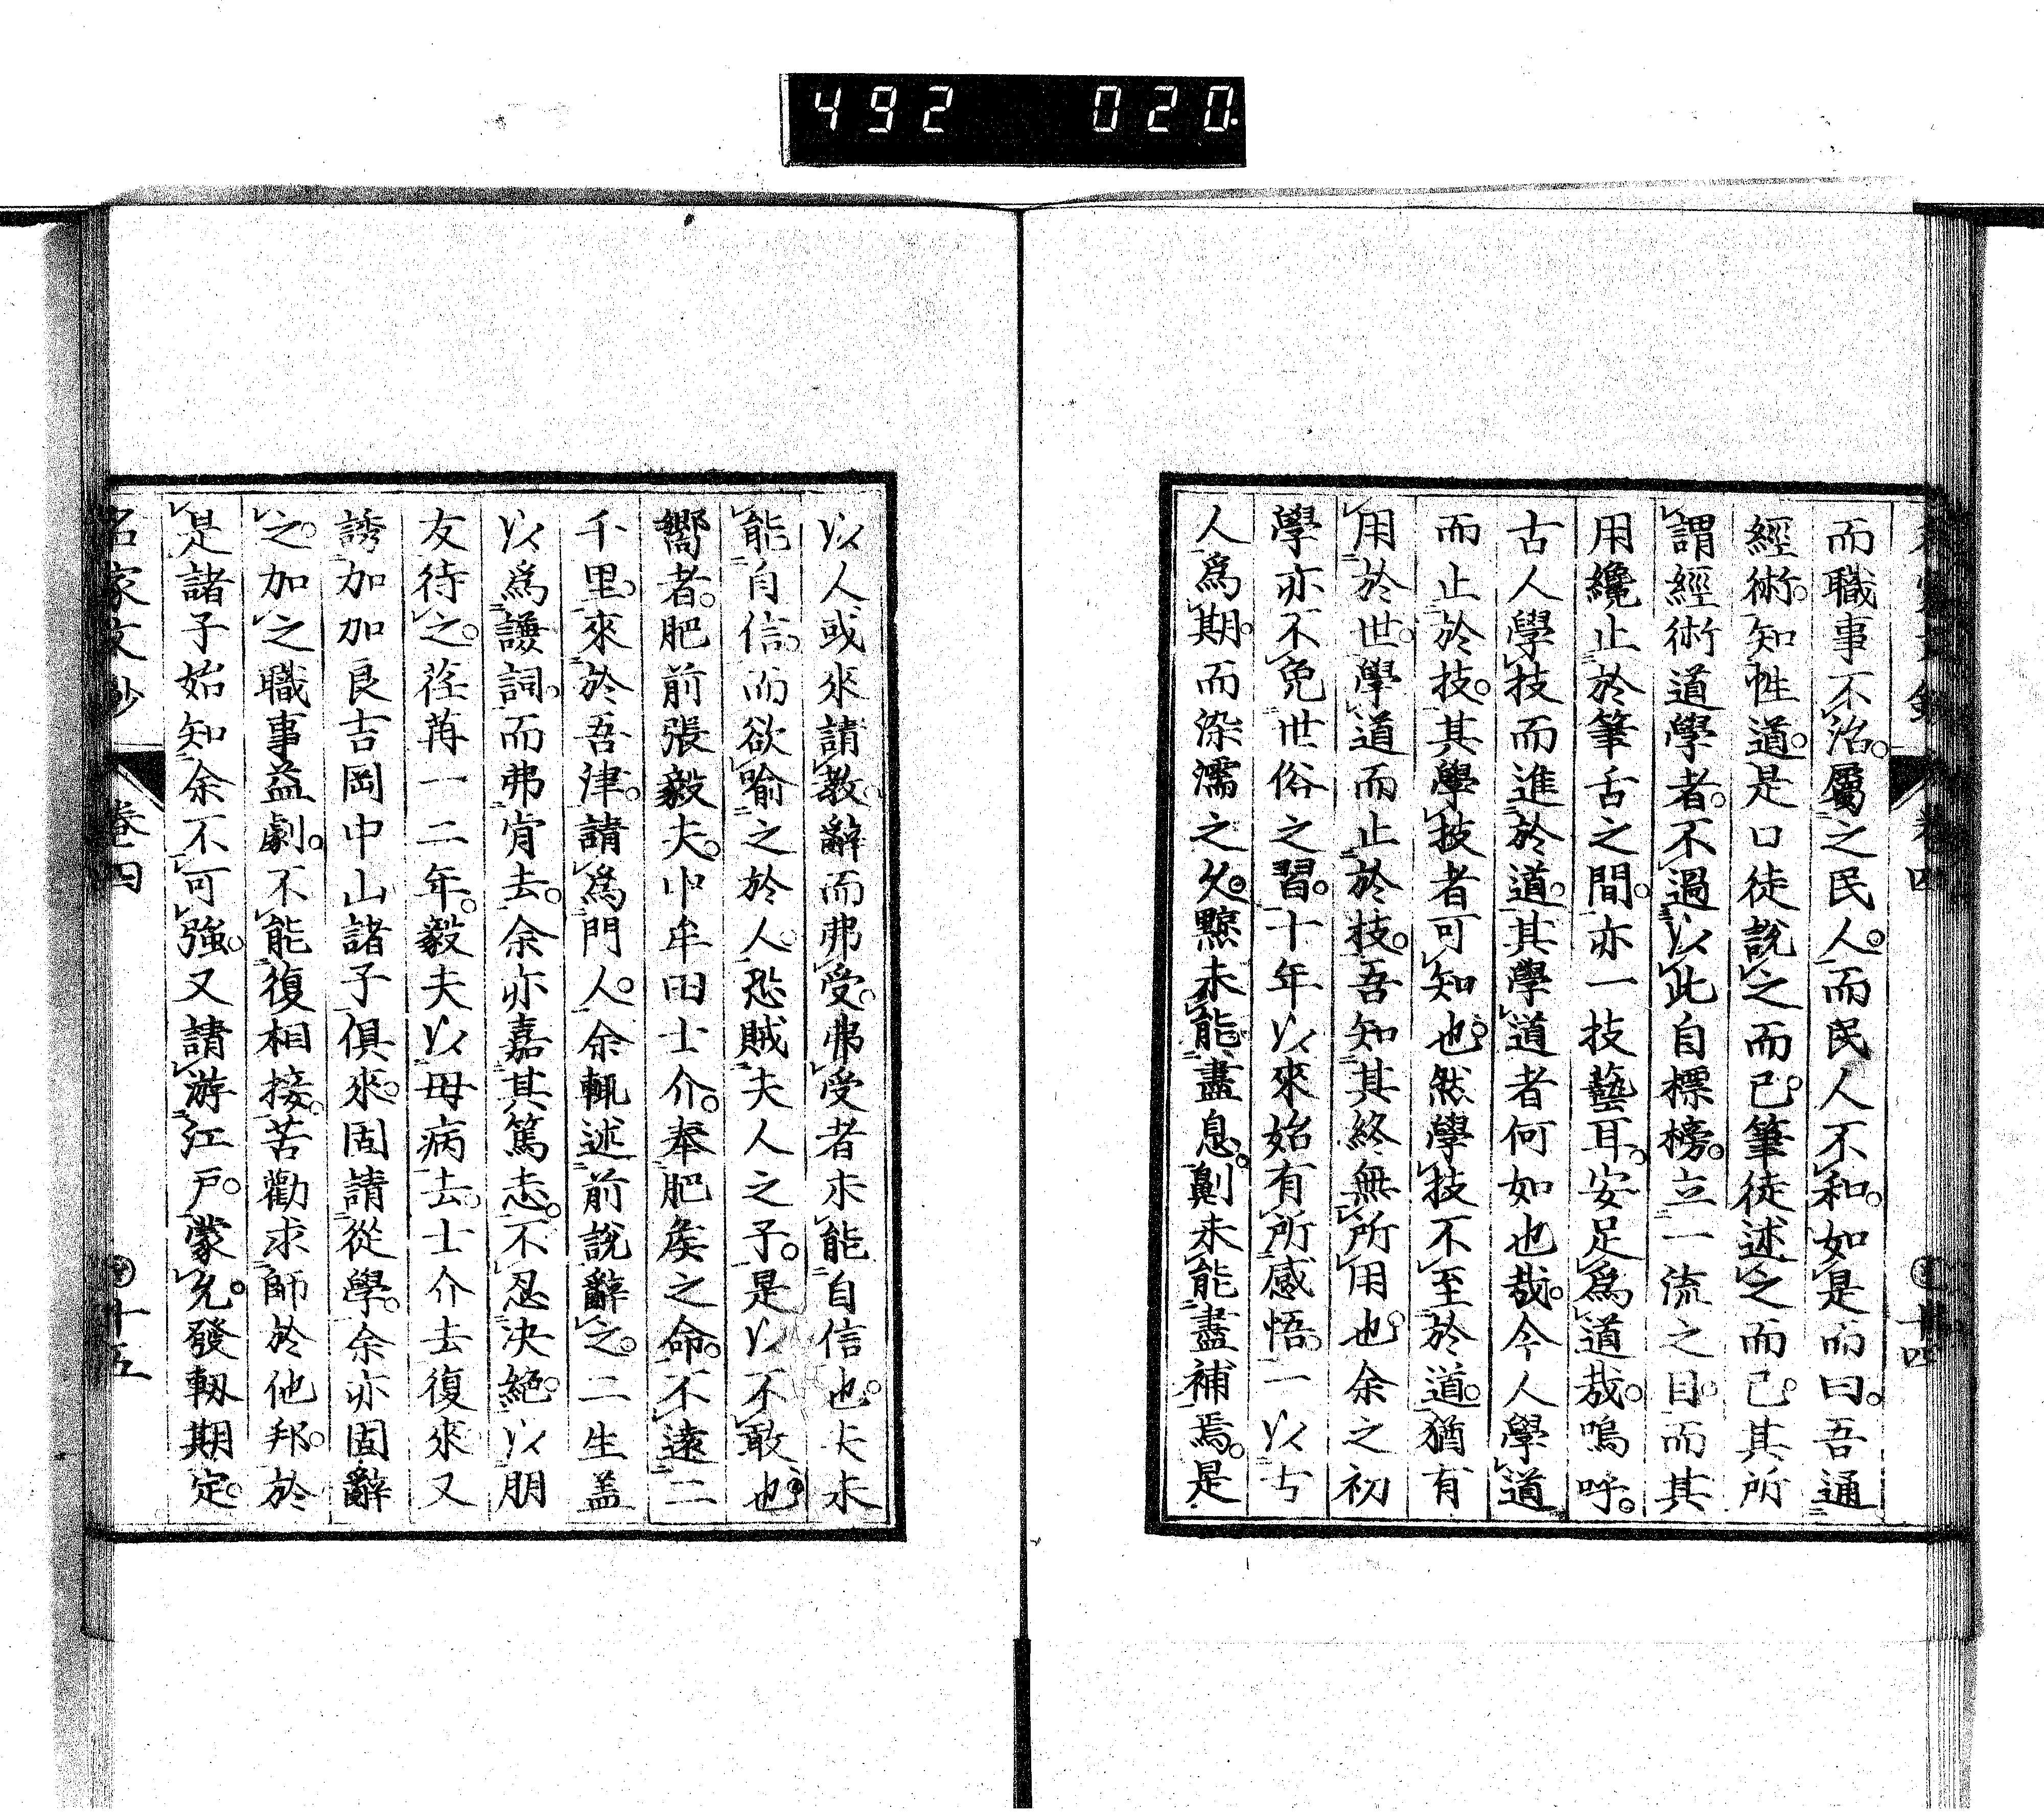 492 020
而職事不治屬之民人而民人不和如是而曰吾通
經術知性道是口徒說之而已筆徒述之而已其所
謂經術道學者不過以此自標榜立一流之目而其
用纔止於筆舌之間亦一技藝耳安足爲道哉嗚呼
古人學技而進於道其學道者何如也哉今人學道
而止於技其學技者可知也然學技不至於道猶有
用於世學道而止於技吾知其終無所用也余之初
學亦不免世俗之習十年以來始有所感悟一以古
人爲期而染濡之久黥未能盡息劓未能盡補焉是
以人或來請教辭而弗受弗受者未能自信也夫未
能自信而欲喻之於人恐賊夫人之子是以不敢也
嚮者肥前張毅夫中牟田士介奉肥矦之命不遠二
千里來於吾津請爲門人余輒述前說辭之二生盖
以爲謙詞而弗肯去余亦嘉其篤志不忍決絕以朋
友待之荏苒一二年毅夫以母病去士介去復來又
誘加加良吉岡中山諸子俱來固請從學余亦固辭
之加之職事益劇不能復相接苦勸求師於他邦於
是諸子始知余不可強又請游江戶蒙允發軔期定
名家文抄 卷四 十五